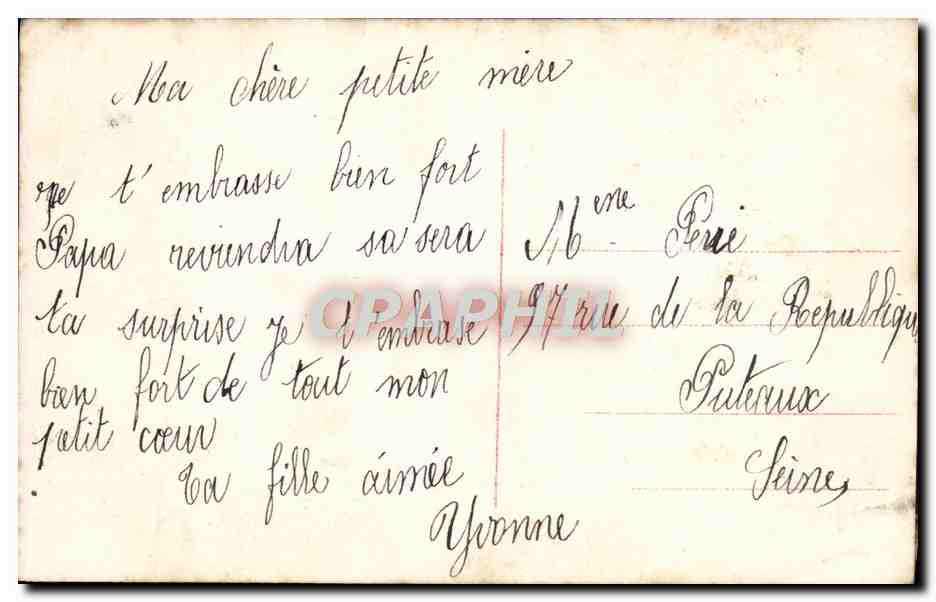 Ma chère petite mère
je t'embrasse bien fort
Papa reviendra sa sera
ta surprise je t'embrase
bien fort de tout mon
petit cœur
Ta fille aimée
Yvonne
Mene Perie
97 rue de la Republique
Puteaux
Seine
CPAPHIL